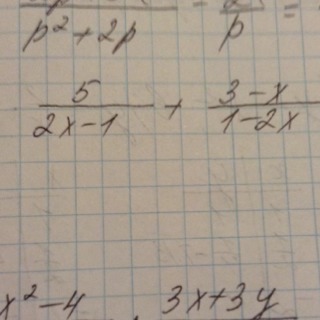 p² + 2p   p =
5/(2x-1) + (3-x)/(1-2x)
x²-4   3x+3y